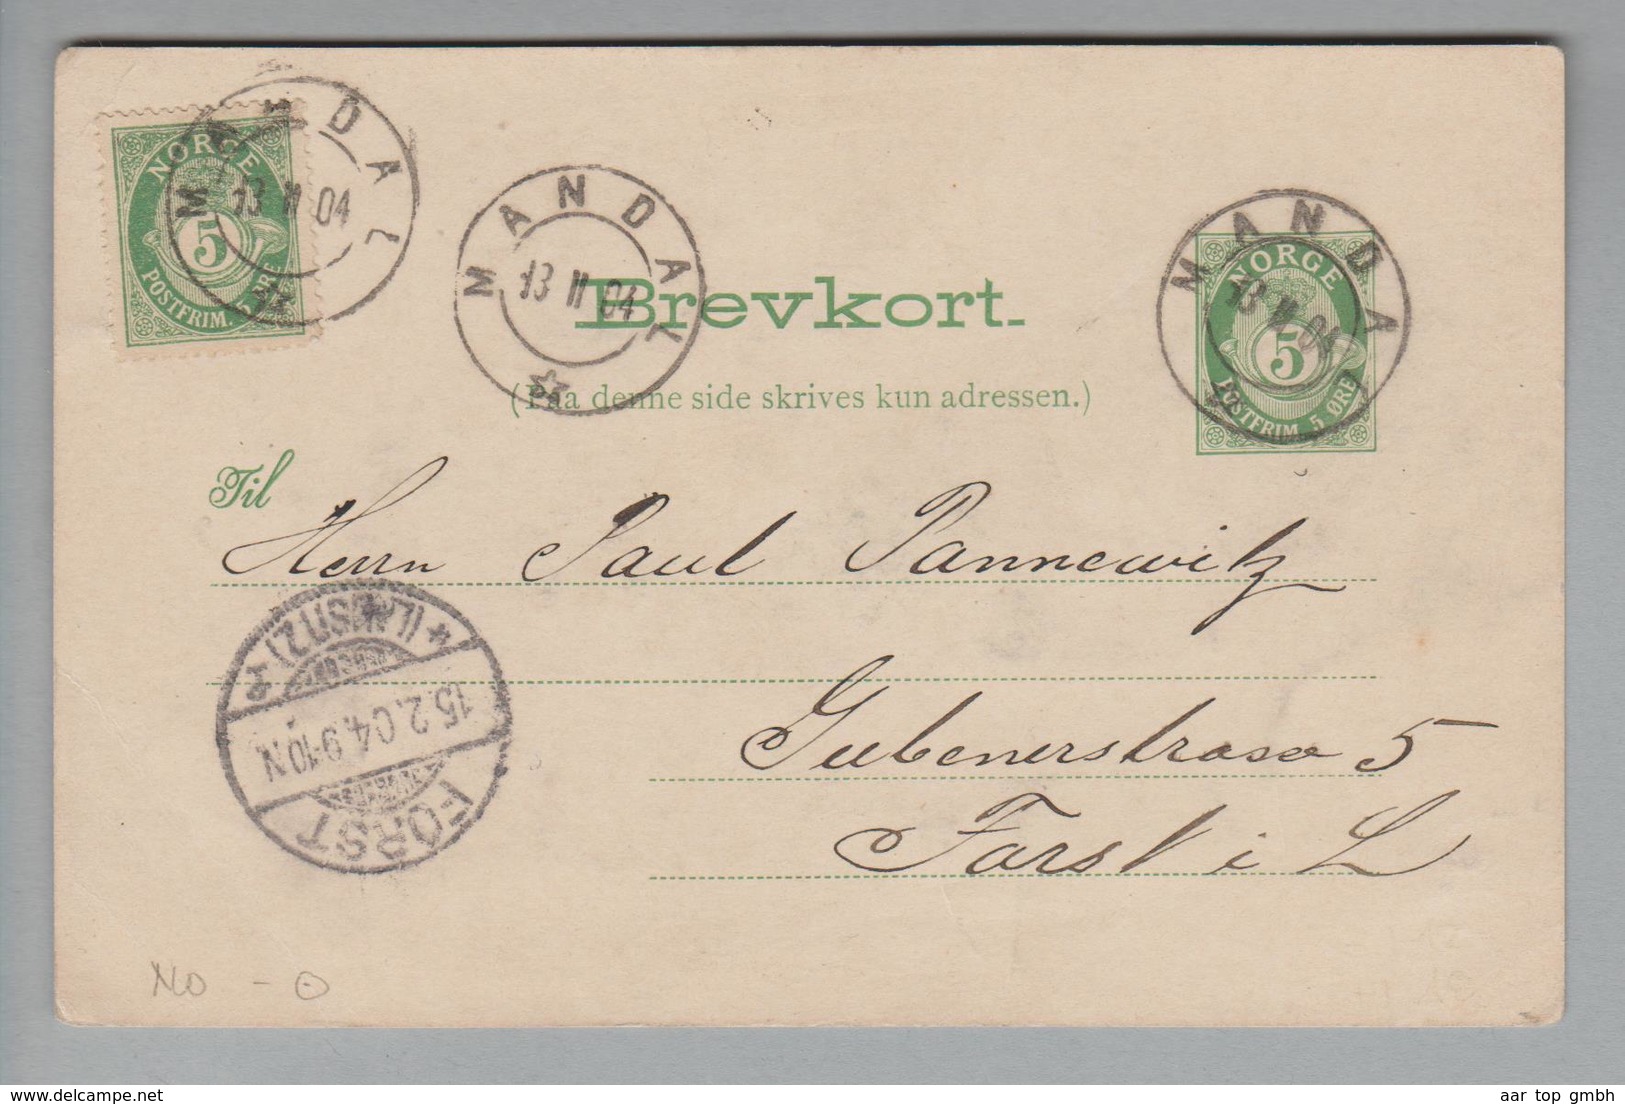 NORGE
5
POSTFRIM. 5 ØRE
MANDAL
13 II 04
MANDAL
13 II 04
MANDAL
13 II 04
NORGE
5
POSTFRIM. 5 ØRE
Brevkort.
(Paa denne side skrives kun adressen.)
Til
Herrn Paul Pannewitz
Gubenerstrasse 5
Forst i L
(LAUSITZ)
15.2.04.9-10N
FORST
NO - O
aar top gmbh